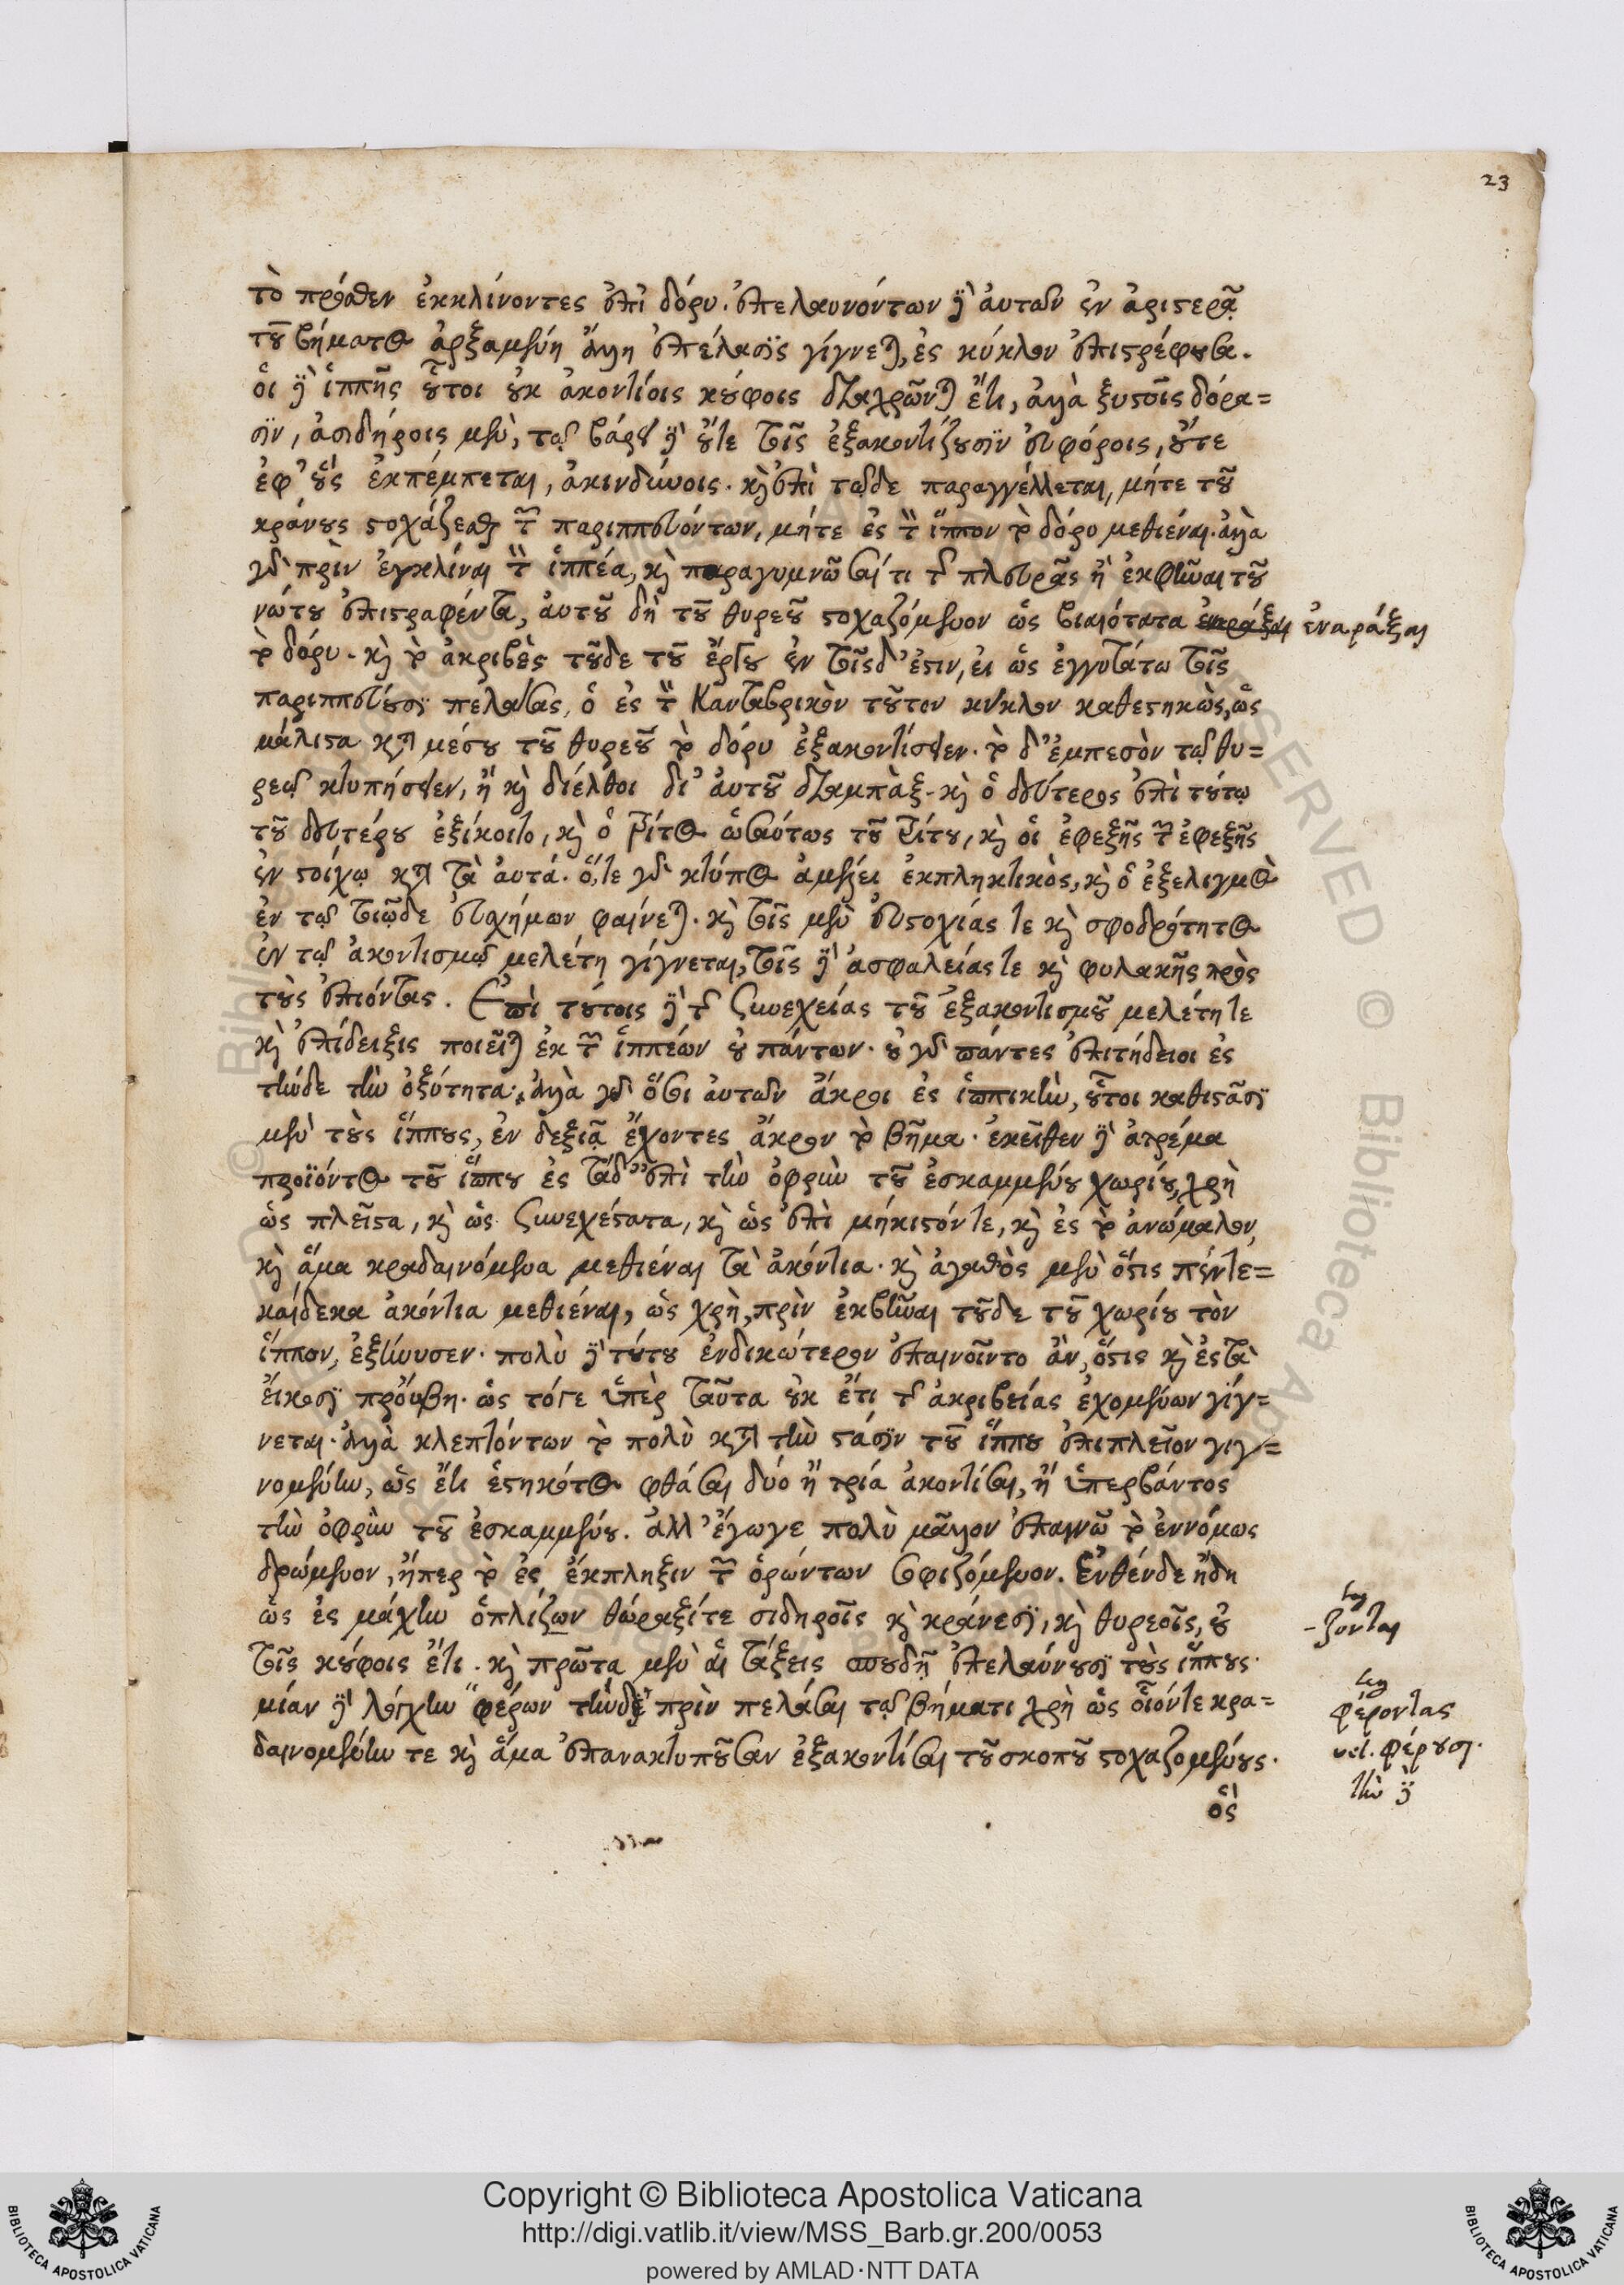 23
τὸ πρόσθεν ἐκκλίνοντες ἐπὶ δόρυ. ἐπελαυνόντων δὲ αὐτῶν ἐν ἀριστερᾷ
τοῦ βήματος ἀρξαμένη ἄλλη ἐπέλασις γίγνεται, ἐς κύκλον ἐπιστρέφουσα.
οἱ δὲ ἱππῆς οὗτοι οὐκ ἀκοντίοις κούφοις διαχρῶνται ἔτι, ἀλλὰ ξυστοῖς δόρα=
σιν, ἀσιδήροις μὲν, τῷ βάρει δὲ οὔτε τοῖς ἐξακοντίζουσιν εὐφόροις, οὔτε
ἐφ' οὓς ἐκπέμπεται, ἀκινδύνοις. καὶ ἐπὶ τῷδε παραγγέλλεται, μήτε τοῦ
κράνους στοχάζεσθαι τῶν παριππευόντων, μήτε ἐς τὸν ἵππον τὸ δόρυ μεθιέναι. ἀλλὰ
γὰρ πρὶν ἐγκλῖναι τὸν ἱππέα, καὶ παραγυμνῶσαί τι τῆς πλευρᾶς ἢ ἐκφῆναι τοῦ
νώτου ἐπιστραφέντα, αὐτοῦ δὴ τοῦ θυρεοῦ στοχαζόμενον ὡς βιαιότατα ἐναράξαι
τὸ δόρυ. καὶ τὸ ἀκριβὲς τοῦδε τοῦ ἔργου ἐν τοῖσδ' ἐστιν, εἰ ὡς ἐγγυτάτω τοῖς
παριππεύουσι πελάσας, ὁ ἐς τὸν Κανταβρικὸν τοῦτον κύκλον καθεστηκὼς, ὡς
μάλιστα κατὰ μέσου τοῦ θυρεοῦ τὸ δόρυ ἐξακοντίσειεν. τὸ δ' ἐμπεσὸν τῷ θυ=
ρεῷ κτυπήσειεν, ἢ καὶ διέλθοι δι' αὐτοῦ διαμπὰξ. καὶ ὁ δεύτερος ἐπὶ τούτῳ
τοῦ δευτέρου ἐξίκοιτο, καὶ ὁ τρίτος ὡσαύτως τοῦ τρίτου, καὶ οἱ ἐφεξῆς τῶν ἐφεξῆς
ἐν στοίχῳ κατὰ τὰ αὐτά. ὅ,τε γὰρ κτύπος ἀμείει ἐκπληκτικὸς, καὶ ὁ ἐξελιγμὸς
ἐν τῷ τοιῷδε εὐσχήμων φαίνεται. καὶ τοῖς μὲν εὐστοχίας τε καὶ σφοδρότητος
ἐν τῷ ἀκοντισμῷ μελέτη γίγνεται, τοῖς δὲ ἀσφαλείας τε καὶ φυλακῆς πρὸς
τοὺς ἐπιόντας. Ἐπὶ τούτοις δὲ τῆς συνεχείας τοῦ ἐξακοντισμοῦ μελέτη τε
καὶ ἐπίδειξις ποιεῖται ἐκ τῶν ἱππέων οὐ πάντων. οὐ γὰρ πάντες ἐπιτήδειοι ἐς
τήνδε τὴν ὀξύτητα. ἀλλὰ γὰρ ὅσοι αὐτῶν ἄκροι ἐς ἱππικὴν, οὗτοι καθιστᾶσι
μὲν τοὺς ἵππους, ἐν δεξιᾷ ἔχοντες ἄκρον τὸ βῆμα. ἐκεῖθεν δὲ ἀτρέμα
προϊόντος τοῦ ἵππου ἐς τάδ' ἐπὶ τὴν ὀφρὺν τοῦ ἐσκαμμένου χωρίου, χρὴ
ὡς πλεῖστα, καὶ ὡς συνεχέστατα, καὶ ὡς ἐπὶ μήκιστόν τε, καὶ ἐς τὸ ἀνώμαλον,
καὶ ἅμα κραδαινόμενα μεθιέναι τὰ ἀκόντια. καὶ ἀγαθὸς μὲν ὅστις πέντε=
καίδεκα ἀκόντια μεθιέναι, ὡς χρὴ, πρὶν ἐκβῆναι τοῦδε τοῦ χωρίου τὸν
ἵππον, ἐξήνυσεν. πολὺ δὲ τούτου ἐνδικώτερον ἐπαινοῖντο ἂν, ὅστις καὶ ἐς τὰ
εἴκοσι προύβη. ὡς τόγε ὑπὲρ ταῦτα οὐκ ἔτι τῆς ἀκριβείας ἐχομένων γίγ=
νεται. ἀλλὰ κλεπτόντων τὸ πολὺ κατὰ τὴν στάσιν τοῦ ἵππου ἐπιπλεῖον γιγ=
νομένην, ὡς ἔτι ἑστηκότος φθάσαι δύο ἢ τρία ἀκοντίσαι, ἢ ὑπερβάντος
τὴν ὀφρὺν τοῦ ἐσκαμμένου. ἀλλ' ἔγωγε πολὺ μᾶλλον ἐπαινῶ τὸ ἐννόμως
δρώμενον, ἤπερ τὸ ἐς ἔκπληξιν τῶν ὁρώντων σοφιζόμενον. Ἐνθένδε ἤδη
ὡς ἐς μάχην ὁπλίζων θώραξί τε σιδηροῖς καὶ κράνεσι, καὶ θυρεοῖς, οὐ
-ζονται
τοῖς κούφοις ἔτι. καὶ πρῶτα μὲν αἱ τάξεις σπουδῇ ἐπελαύνουσι τοὺς ἵππους.
μίαν δὲ λόγχην φέρων τήνδε πρὶν πελάσαι τῷ βήματι χρὴ ὡς οἷόντε κρα=
φέροντας
δαινομένην τε καὶ ἅμα ἐπανακτυποῦσαν ἐξακοντίσαι τοῦ σκοποῦ στοχαζομένους.
vel. φέρουσι.
τὴν δὲ
ὃς
Copyright © Biblioteca Apostolica Vaticana
http://digi.vatlib.it/view/MSS_Barb.gr.200/0053
powered by AMLAD·NTT DATA
BIBLIOTECA APOSTOLICA VATICANA
BIBLIOTECA APOSTOLICA VATICANA